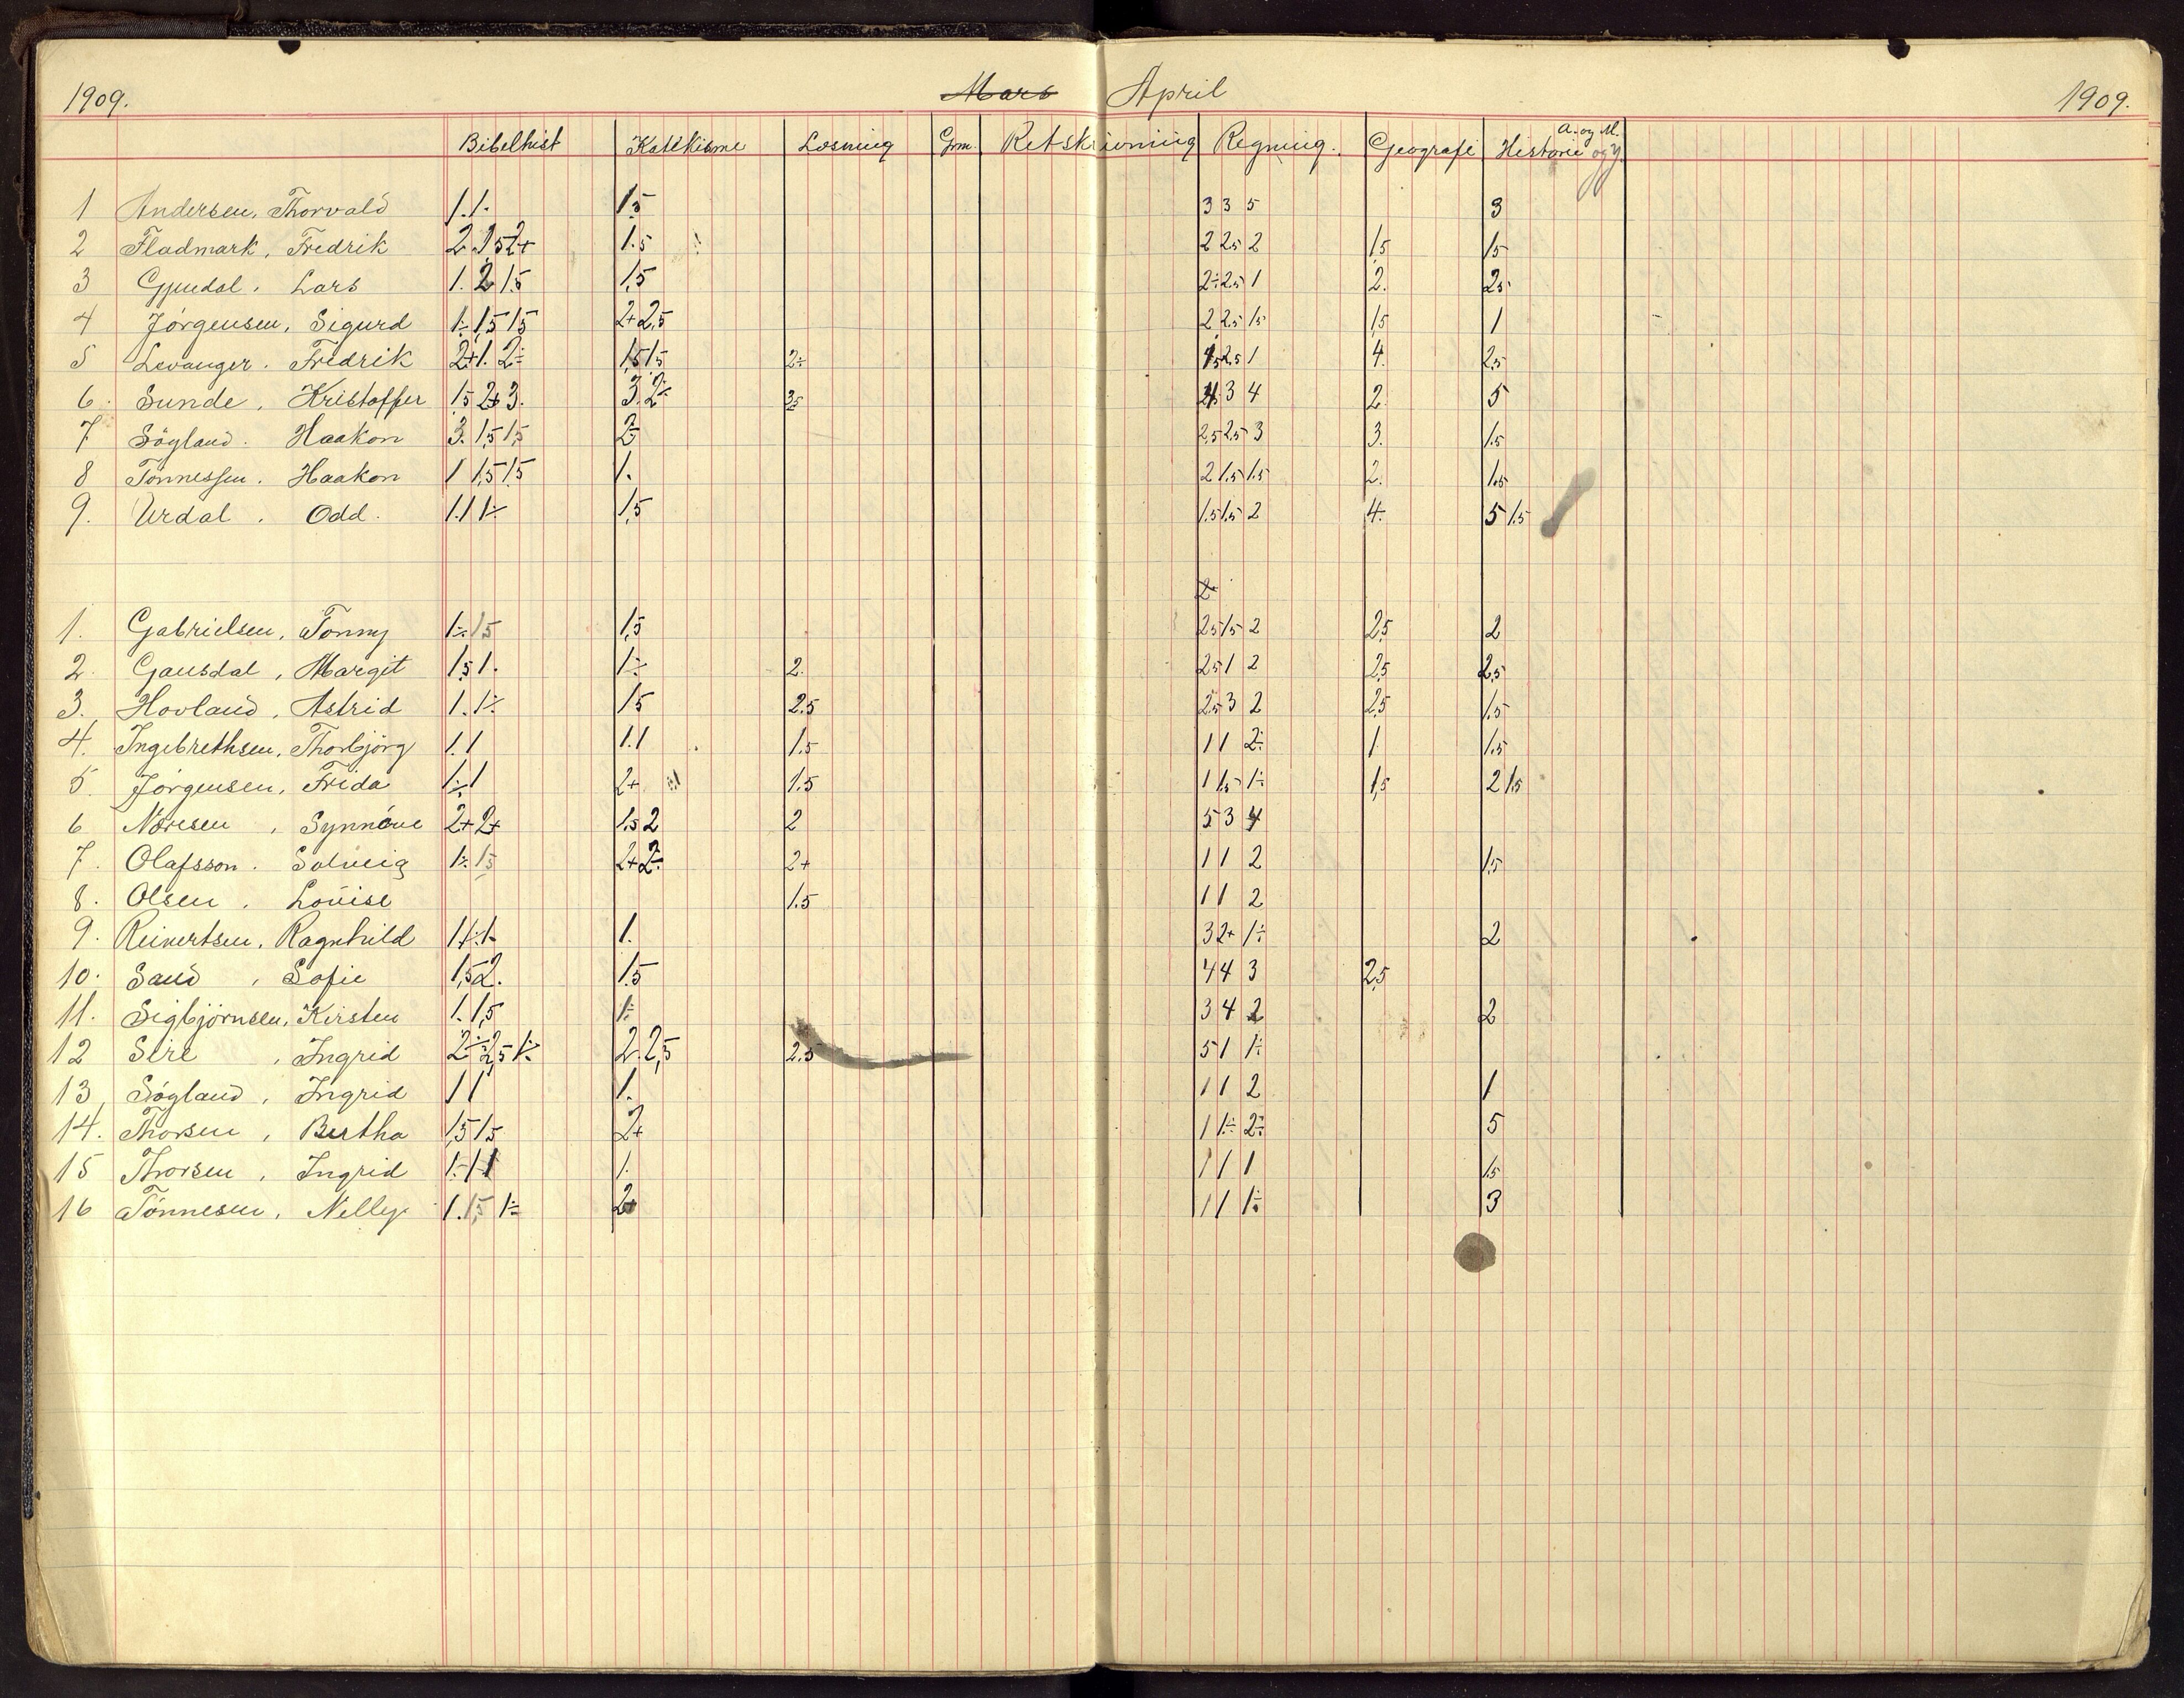 1909. Mars April 1909.
Bibelhist Katekisme Læsning Grm. Retskrivning Regning. Geografi Historie A. og M. og Y.
1 Andersen, Thorvald 1. 1. 1,5 3 3 5 3
2 Fladmark, Fredrik 2 1,5 2+ 1.5 2 2,5 2 1,5 1,5
3 Gjesdal, Lars 1. 2 1.5 1,5 2÷ 2,5 1 2. 2,5
4 Jörgensen, Sigurd 1÷ 1,5 1,5 2+ 2,5 2 2,5 1,5 1,5 1
5 Levanger. Fredrik 2+ 1. 2÷ 1,5 1,5 2÷ 2,5 1 4. 2,5
6. Sunde, Kristoffer 1,5 2+ 3. 3. 2÷ 3 4 2. 5
7 Sögland. Haakon 3. 1,5 1,5 2÷ 2,5 2,5 3 3. 1.5
8 Tönnessen. Haakon 1 1,5 1,5 1. 2 1.5 1.5 2. 1.5
9. Urdal, Odd. 1. 1 1÷ 1,5 1.5 1.5 2 4. 5 1.5
2
1. Gabrielsen, Tonny 1÷ 1,5 1,5 2,5 1,5 2 2,5 2
2. Gausdal, Margit 1,5 1. 1÷ 2. 2,5 1 2 2,5 2,5
3. Hovland, Astrid 1. 1÷ 1,5 2.5 2,5 3 2 2,5 1.5
4. Ingebrethsen, Thorbjörg 1. 1 1. 1 1.5 1 1 2÷ 1 1.5
5. Jörgensen, Frida 1÷ 1 2+ 1.5 1 1,5 1÷ 1,5 2 1.5
6 Noresen, Synnöve 2+ 2+ 1.5 2 2 5 3 4
7. Olafsson. Solveig 1÷ 1,5 2+ 2÷ 2+ 1 1 2 1.5
8. Olsen, Louise 1.5 1 1 2
9. Reinertsen, Ragnhild 1 1÷ 1. 1. 3 2+ 1÷ 2
10. Sand, Sofie 1,5 2. 1.5 4 4 3 2,5
11. Sigbjörnsen, Kirsten 1. 1,5 1÷ 3 4 2 2
12 Sire, Ingrid 2÷ 2,5 1÷ 2. 2,5 2.5 5 1 1÷
13 Sögland, Ingrid 1 1 1. 1 1 2 1
14. Thorsen, Bertha 1,5 1,5 2+ 1 1÷ 2÷ 5
15 Thorsen, Ingrid 1÷ 1 1 1. 1 1 1 1.5
16 Tönnesen, Nelly 1. 1,5 1÷ 2+ 1 1 1÷ 3